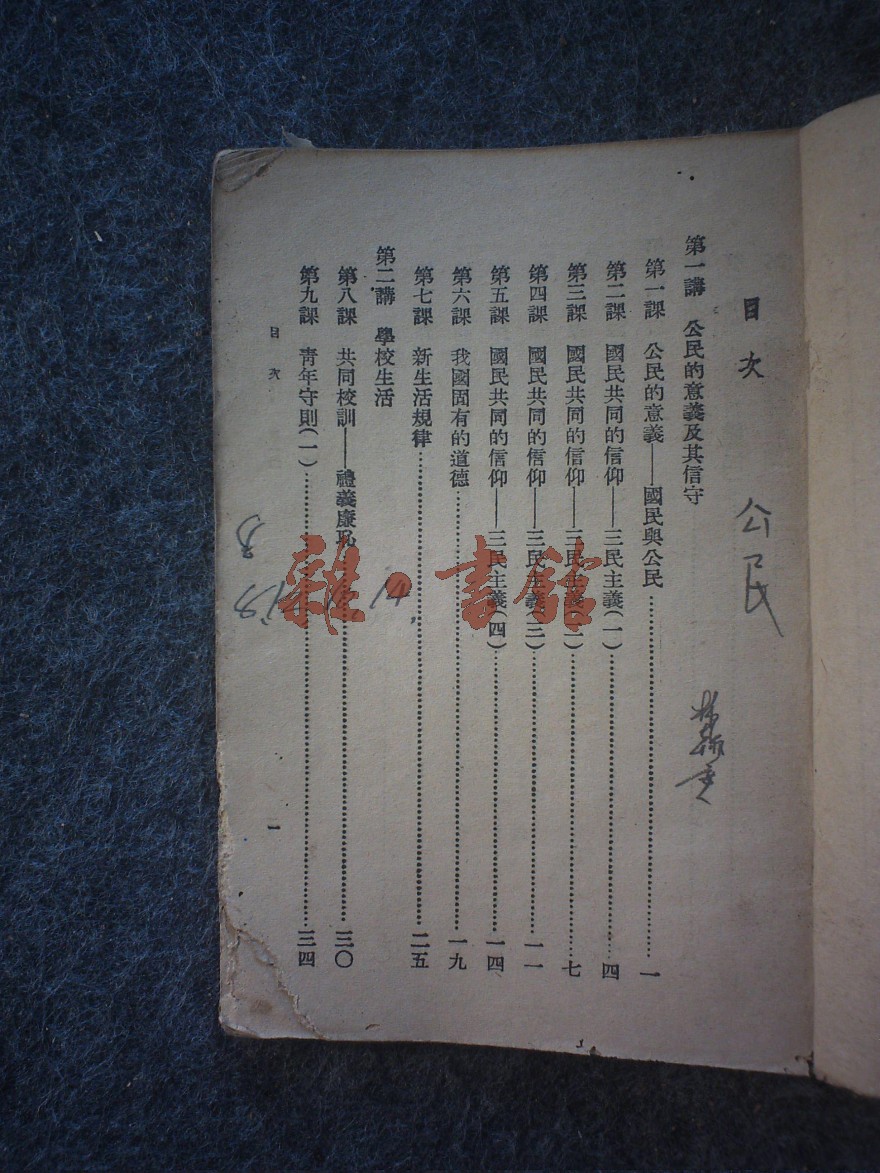 目次
公民
第一講　公民的意義及其信守
第一課　公民的意義——國民與公民…………一
第二課　國民共同的信仰——三民主義(一)…………四
第三課　國民共同的信仰——三民主義(二)…………七
第四課　國民共同的信仰——三民主義(三)…………一一
第五課　國民共同的信仰——三民主義(四)…………一四
第六課　我國固有的道德…………一九
第七課　新生活規律…………二五
第二講　學校生活
第八課　共同校訓——禮義廉恥…………三〇
第九課　青年守則(一)…………三四
目次
一
14
雜·書館